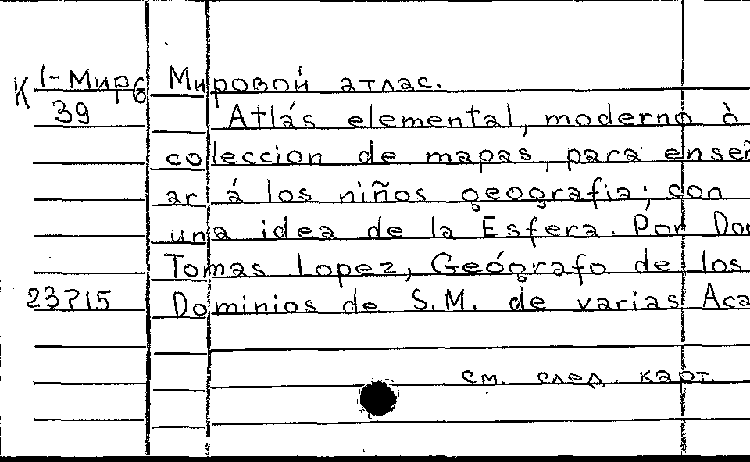 К 1-Мир6 Мировой атлас.
39 Atlás elemental, moderno ò
coleccion de mapas, para enseñ
ar á los niños geografia; con
una idea de la Esfera. Por Don
Tomas Lopez, Geógrafo de los
23715 Dominios de S.M. de varias Aca
см. след. карт.